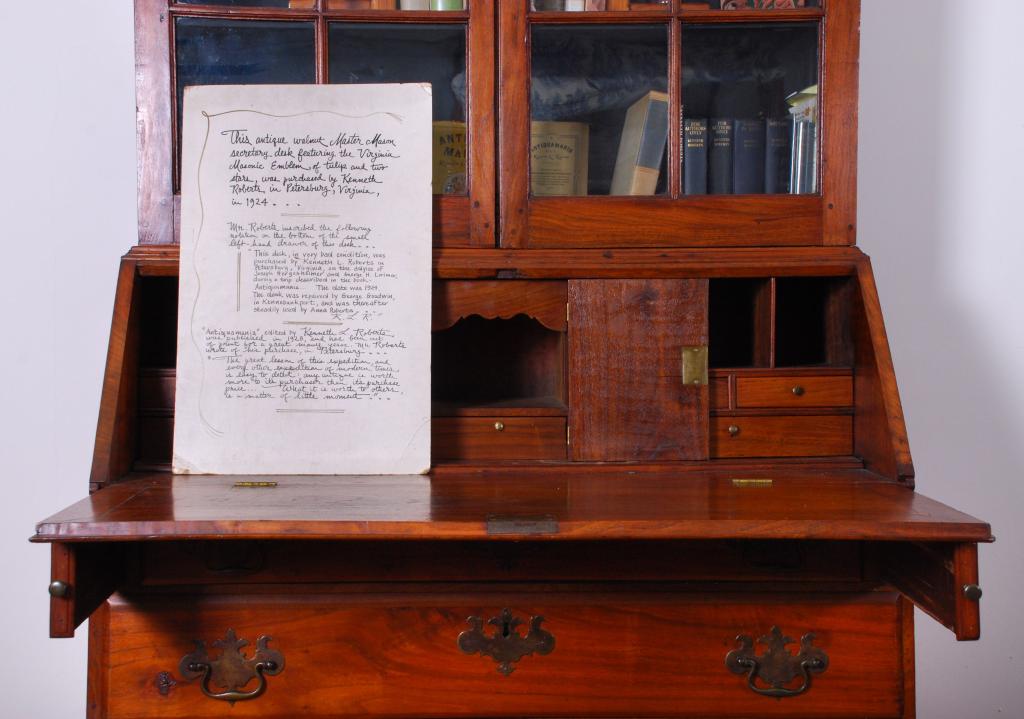 This antique walnut Master Mason
secretary desk featuring the Virginia
Masonic Emblem of tulips and two
stars, was purchased by Kenneth
Roberts in Petersburg, Virginia,
in 1924 . . .
Mr. Roberts inscribed the following
notation on the bottom of the small
left-hand drawer of this desk . . .
"This desk, in very bad condition, was
purchased by Kenneth L. Roberts in
Petersburg, Virginia, on the advice of
Joseph Hergesheimer and George H. Lorimer
during a trip described in the book-
Antiquamania. The date was 1924.
The desk was repaired by George Goodwin,
in Kennebunkport, and was thereafter
steadily used by Anna Roberts
K. L. R."
"Antiquamania", edited by Kenneth L. Roberts
was published in 1928, and has been out
of print for a great many years. Mr. Roberts
wrote of his purchase, in Petersburg . . . .
"The great lesson of this expedition, and
every other expedition of modern times,
is easy to detect: any antique is worth
more to its purchaser than its purchase
price.... What it is worth to others
is a matter of little moment." . .
ANTI
MA
ANTIQUAMANIA
FOR
AUTHORS
ONLY
FOR
AUTHORS
ONLY